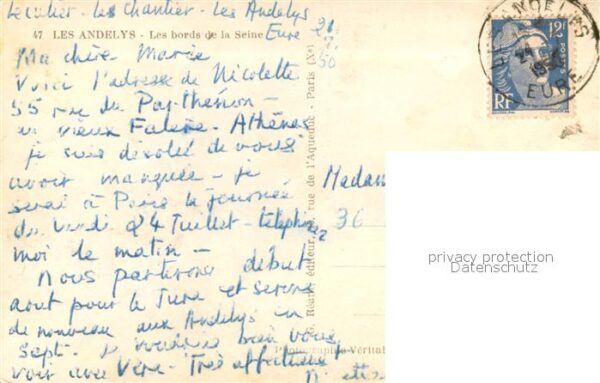 Lecutier - les Chantier - Les Andelys
Eure
47 LES ANDELYS - Les bords de la Seine
21
50
Ma chère Marie
Voici l'adresse de Nicolette
55 rue du Parthénon -
Athènes
je suis désolée de vous
avoir manquée - je
serai à Paris la journée
du 24 Juillet - téléphonez
moi le matin -
Nous partirons début
aout pour le Jura et serons
de nouveau aux Andelys en
Sept. Je voudrais bien vous
voir avec Véra - Très affectueusement
rue de l'Aqueduc - Paris (Xe)
Photographie Véritable
Madam
36
12F
POSTES
RF
ANDELYS
EURE
privacy protection
Datenschutz